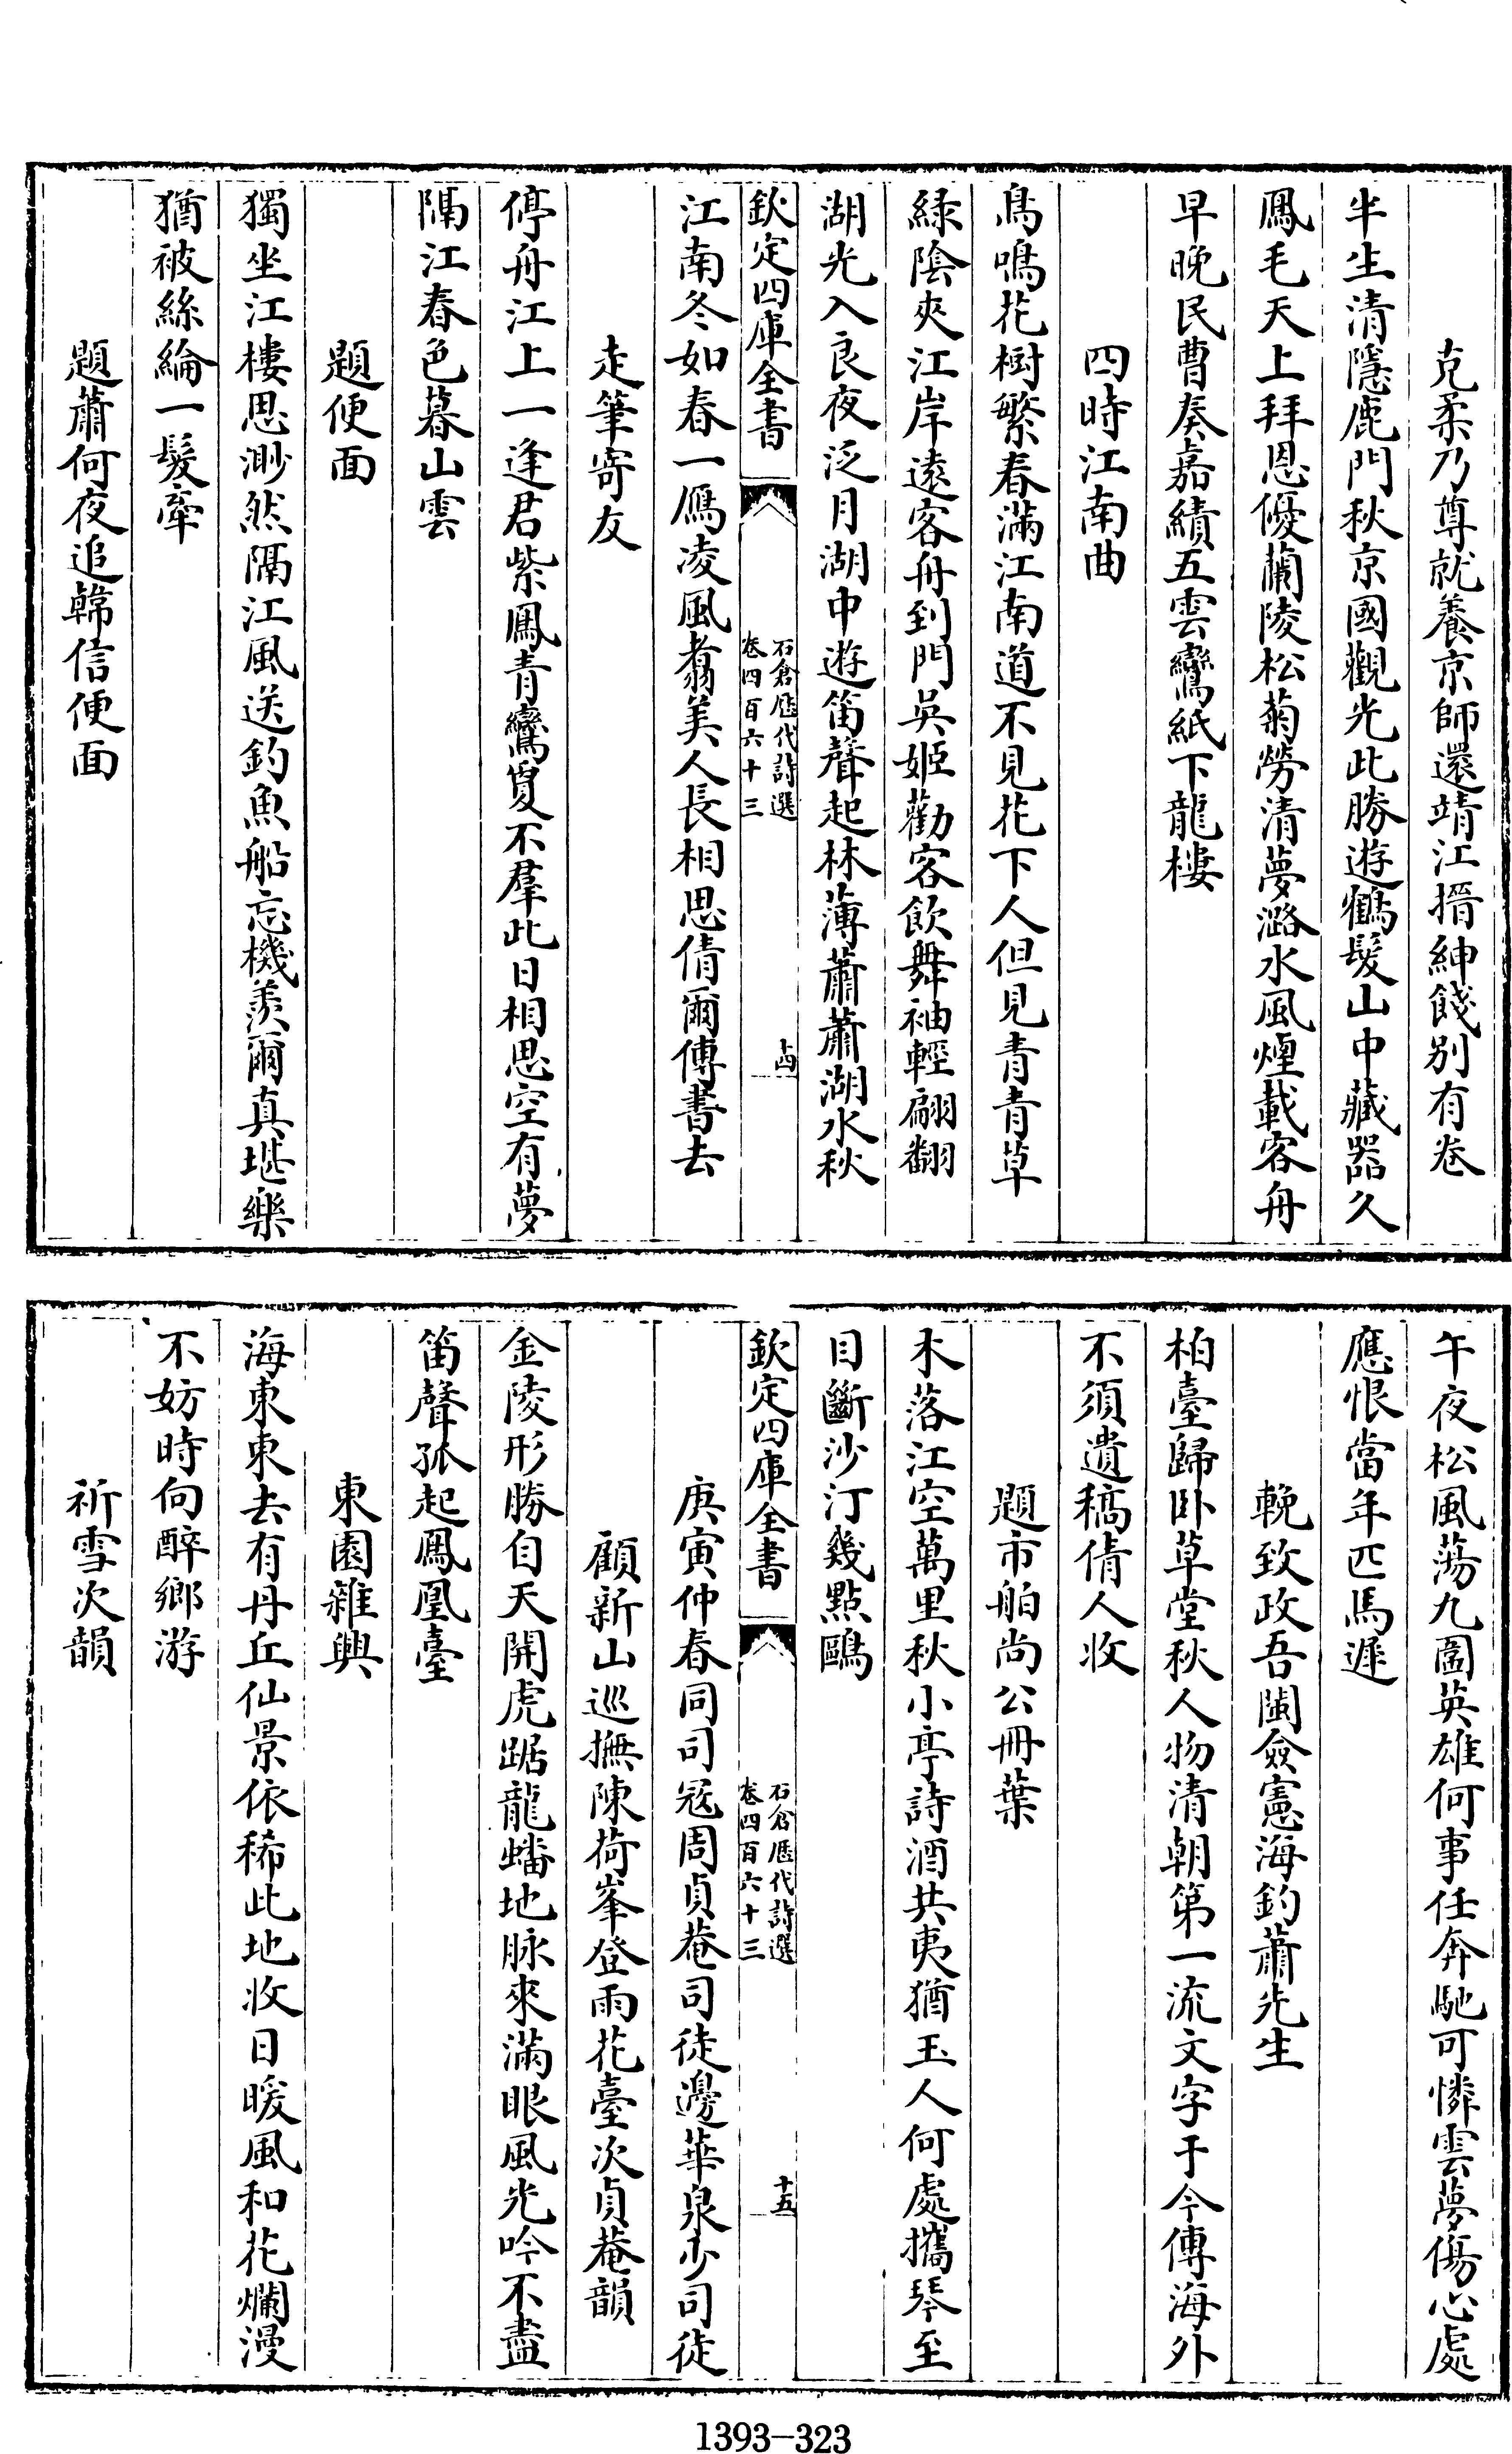 克柔乃尊就養京師還靖江搢紳餞別有卷
半生清隱鹿門秋京國觀光此勝遊鶴髮山中藏器久
鳳毛天上拜恩優蘭陵松菊勞清夢潞水風煙載客舟
早晚民曹奏嘉績五雲鸞紙下龍樓
四時江南曲
鳥鳴花樹繁春滿江南道不見花下人但見青青草
綠陰夾江岸遠客舟到門吳姬勸客飲舞袖輕翩翻
湖光入良夜泛月湖中遊笛聲起林薄蕭蕭湖水秋
欽定四庫全書
石倉歷代詩選
卷四百六十三
十四
江南冬如春一鴈凌風翥美人長相思倩爾傳書去
走筆寄友
停舟江上一逢君紫鳳青鸞夐不羣此日相思空有夢
隔江春色暮山雲
題便面
獨坐江樓思渺然隔江風送釣魚船忘機羨爾真堪樂
猶被絲綸一髮牽
題蕭何夜追韓信便面
午夜松風蕩九圍英雄何事任奔馳可憐雲夢傷心處
應恨當年匹馬遲
輓致政吾閩僉憲海釣蕭先生
柏臺歸卧草堂秋人物清朝第一流文字于今傳海外
不須遺稿倩人收
題市舶尚公冊葉
木落江空萬里秋小亭詩酒共夷猶玉人何處攜琴至
目斷沙汀幾點鷗
欽定四庫全書
石倉歷代詩選
卷四百六十三
十五
庚寅仲春同司寇周貞菴司徒邊華泉少司徒
顧新山巡撫陳荷峯登雨花臺次貞菴韻
金陵形勝自天開虎踞龍蟠地脉來滿眼風光吟不盡
笛聲孤起鳳凰臺
東園雜興
海東東去有丹丘仙景依稀此地收日暖風和花爛漫
不妨時向醉鄉游
祈雪次韻
1393-323